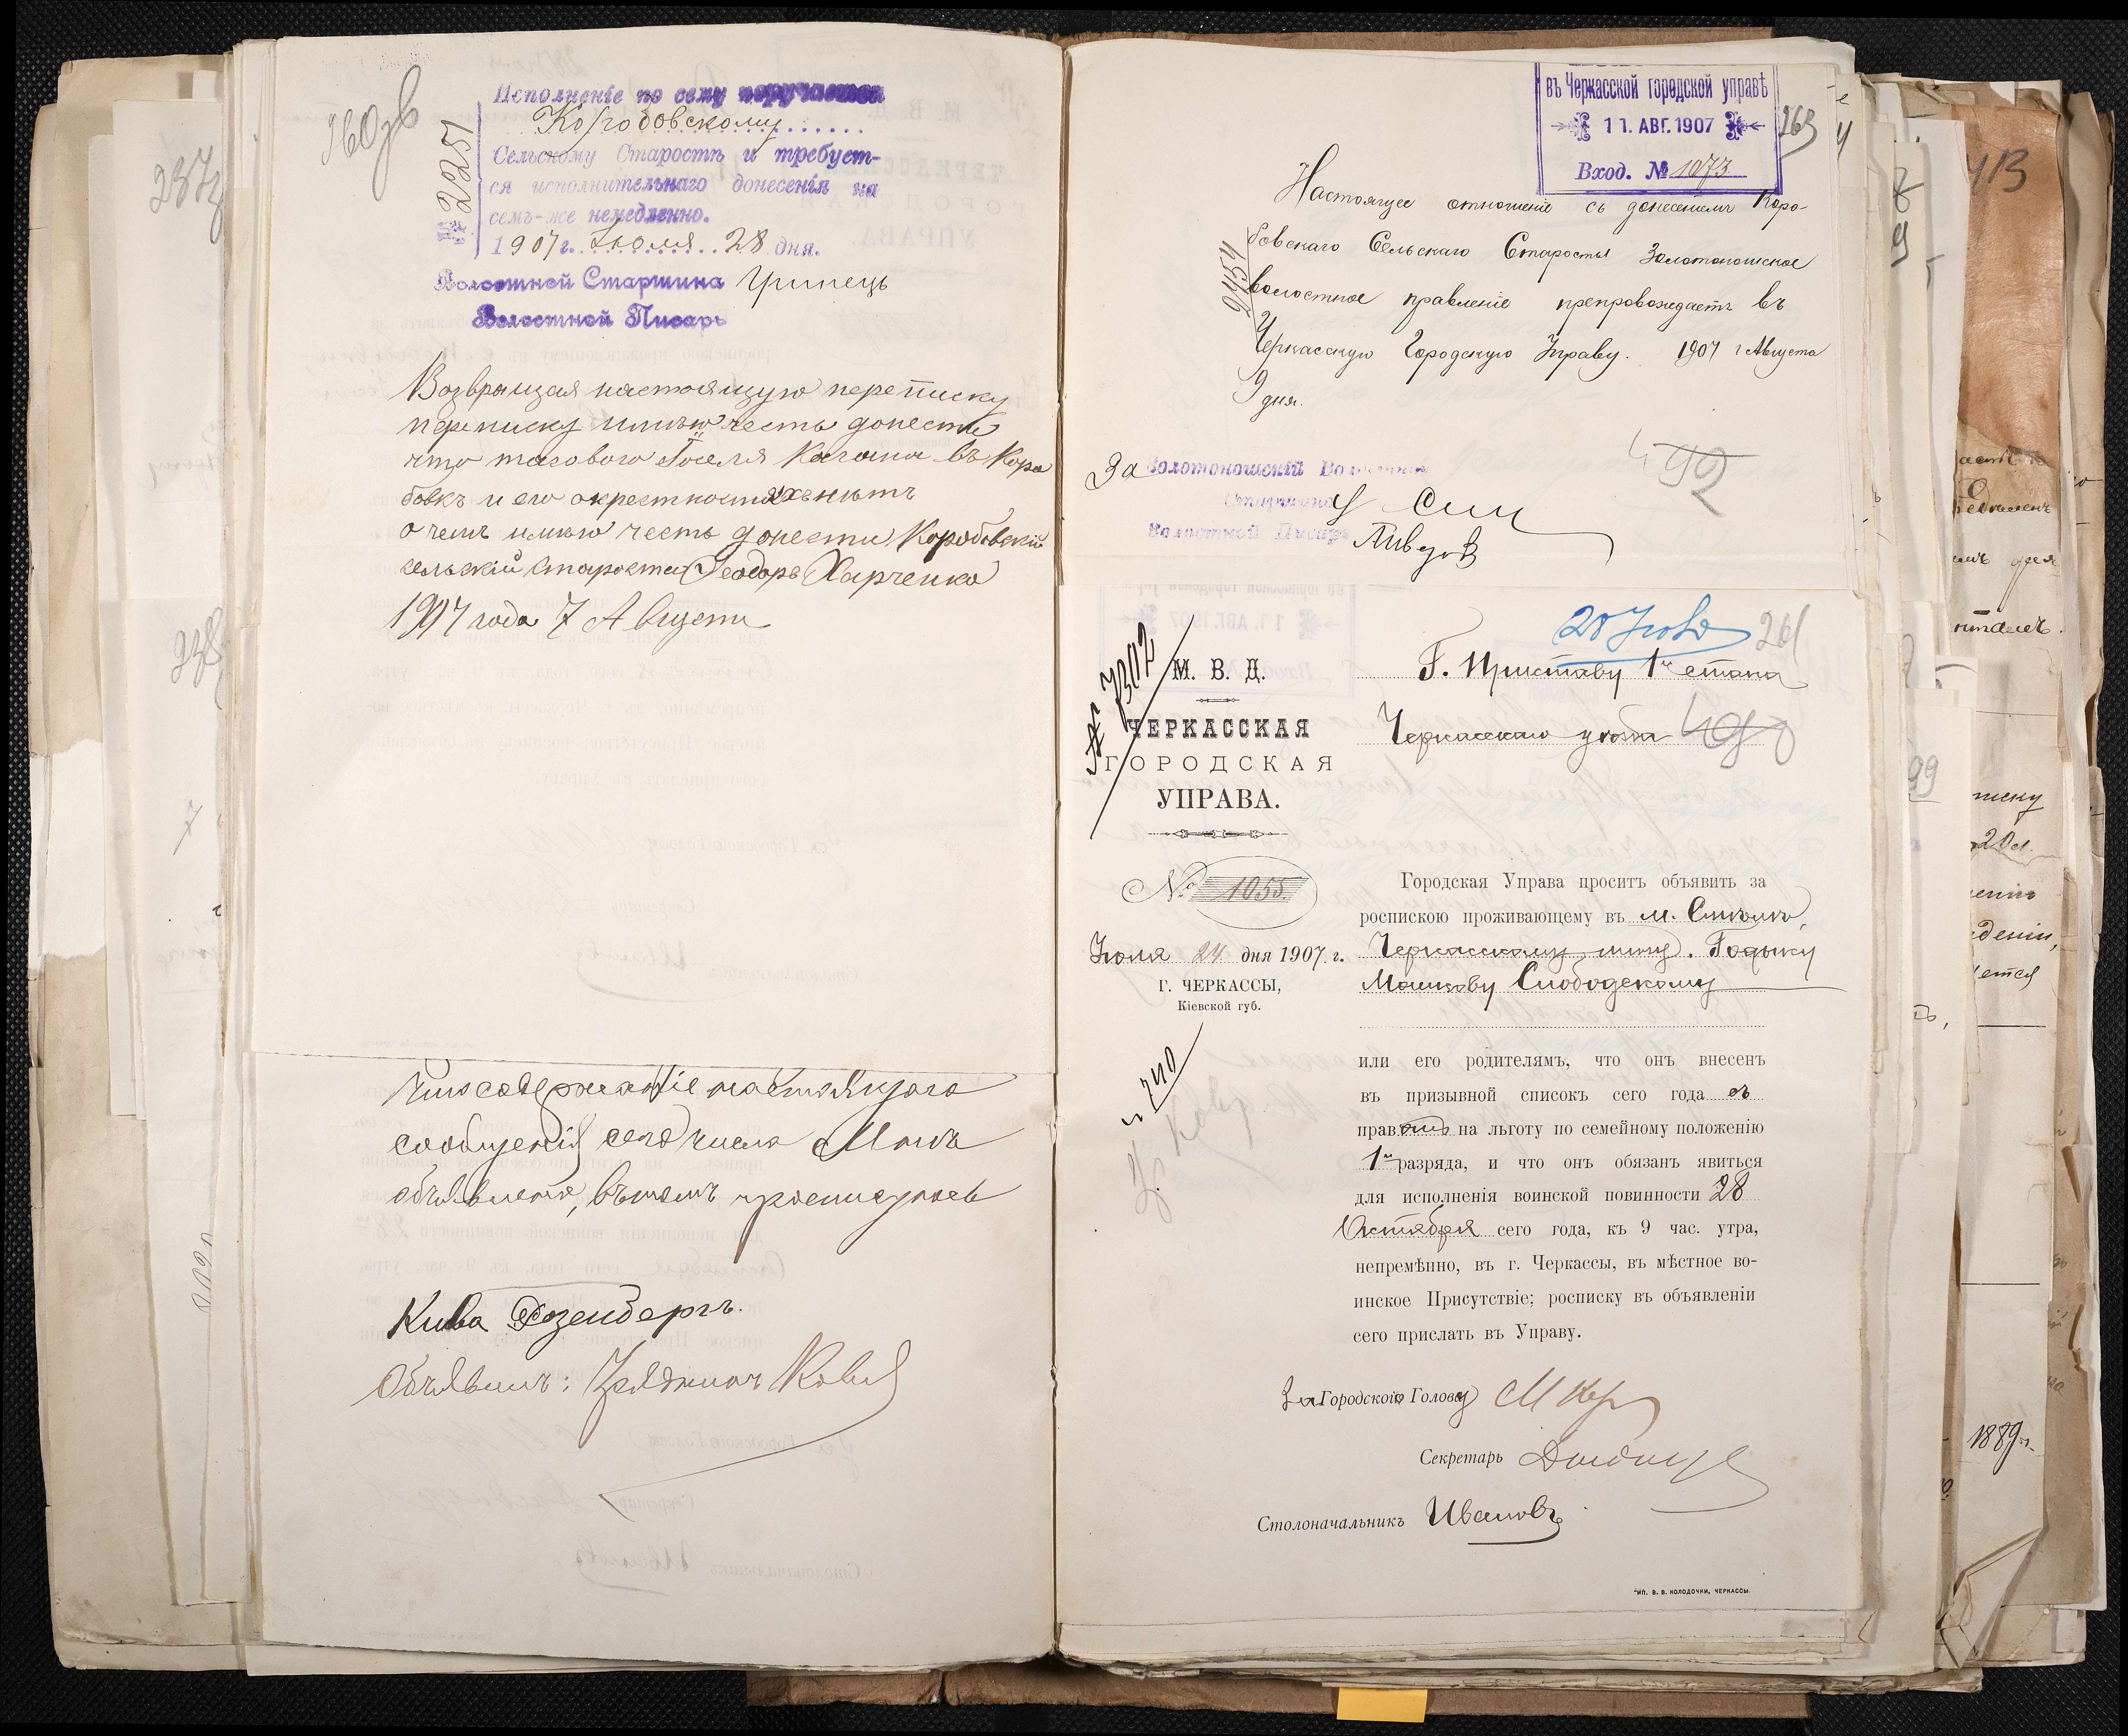 260зв
Исполненіе по сему поручается
Коробовскому
Сельскому Старостѣ и требует-
ся исполнительнаго донесенія на
семъ-же немедленно.
1907 г. Іюля 28 дня.
№ 2251
Волостной Старшина Гринець
Волостной Писарь
Возвращая настоящую переписку
переписку имѣю честь донести
что такового Іоселя Кагана въ Коро
бовкѣ и его окрестностяхъ нѣтъ
о чемъ имѣю честь донести Коробовскій
сельскій староста Ѳеодоръ Харченко
1907 года 7 Августа
Что содержаніе настоящаго
сообщенія сего числа мнѣ
объявлено, въ томъ росписуюсь
Кива Розенбергъ.
Объявилъ: Урядникъ
237
238
7
въ Черкасской городской управѣ
11. АВГ. 1907
Вход. № 1073
263
Настоящее отношеніе съ донесеніемъ Коро-
бовскаго Сельскаго Старосты Золотоношское
волостное правленіе препровождаетъ въ
Черкасскую Городскую Управу. 1907 г Августа
9 дня.
2454
За Золотоношскій Волостной
Старшина
Волостной Писарь
492
261
№ 7302
М. В. Д.
ЧЕРКАССКАЯ
ГОРОДСКАЯ
УПРАВА.
№ 1055
Іюля 24 дня 1907 г.
Г. ЧЕРКАССЫ,
Кіевской губ.
Г. Приставу 1го стана
Черкасскаго уѣзда
490
Городская Управа проситъ объявить за
роспискою проживающему въ м. Смѣлѣ,
Черкасскому мѣщ.
Мошкову Слободскому
или его родителямъ, что онъ внесенъ
въ призывной списокъ сего года съ
правомъ на льготу по семейному положенію
1го разряда, и что онъ обязанъ явиться
для исполненія воинской повинности 28
Октября сего года, къ 9 час. утра,
непремѣнно, въ г. Черкассы, въ мѣстное во-
инское Присутствіе; росписку въ объявленіи
сего прислать въ Управу.
За Городского Голову
Секретарь
Столоначальникъ Ивановъ
ТИП. В. В. КОЛОДОЧКИ, ЧЕРКАССЫ.
99
1889 г.